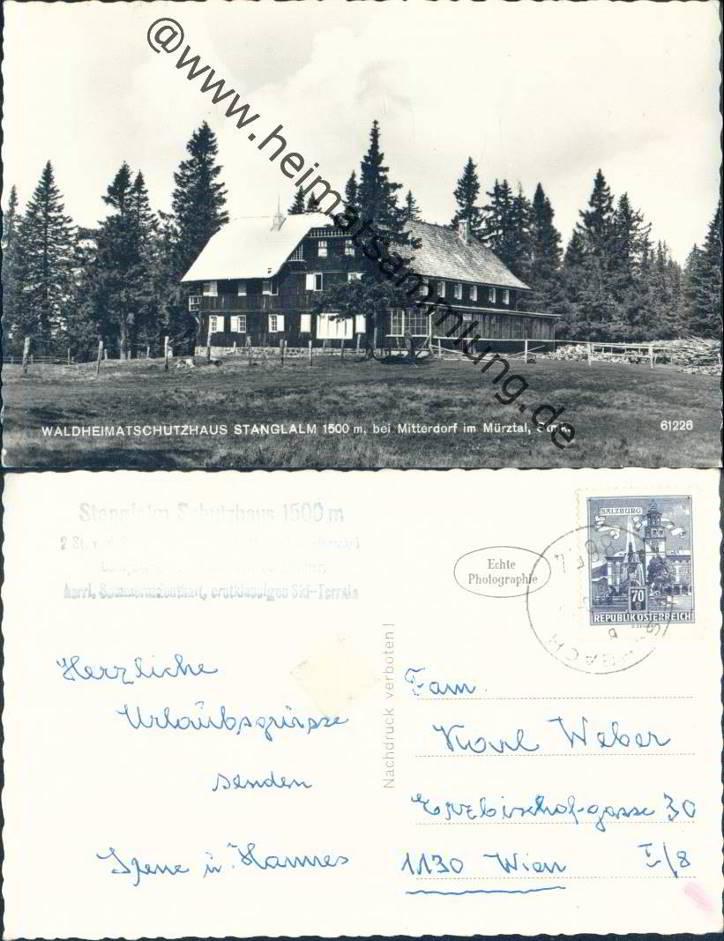 @www.heimatsammlung.de
WALDHEIMATSCHUTZHAUS STANGLALM 1500 m, bei Mitterdorf im Mürztal,
61226
Stanglalm Schutzhaus 1500 m
herrl. erstklassiges Ski-Terrain
Echte
Photographie
SALZBURG
70
REPUBLIK ÖSTERREICH
Nachdruck verboten!
Herzliche
Urlaubsgrüsse
senden
Irene u. Hannes
Fam.
Karl Weber
Erzbischof-gasse 30
1130 Wien I/8